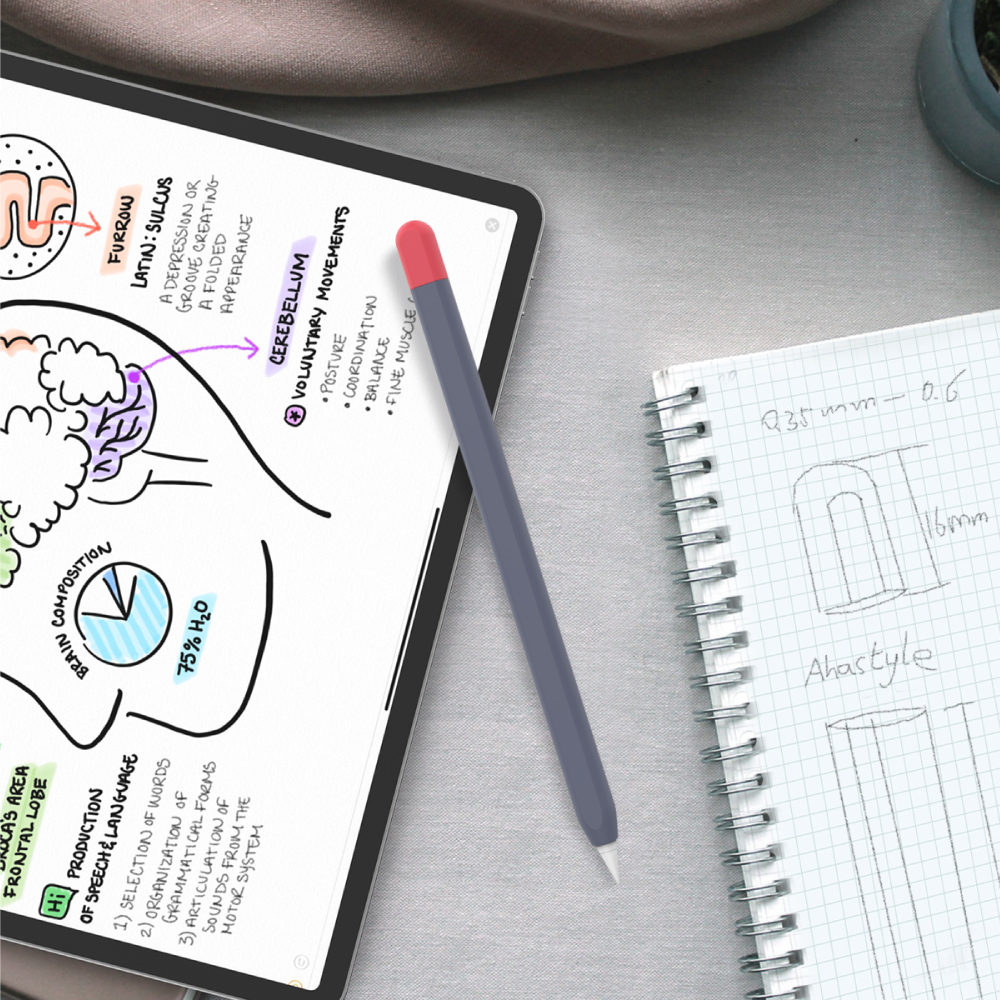 FURROW
LATIN: SULCUS
A DEPRESSION OR
GROOVE CREATING
A FOLDED
APPEARANCE
CEREBELLUM
VOLUNTARY MOVEMENTS
• POSTURE
• COORDINATION
• BALANCE
• FINE MUSCLE
BRAIN COMPOSITION
75% H2O
BROCA'S AREA
FRONTAL LOBE
Hi
PRODUCTION
OF SPEECH & LANGUAGE
1) SELECTION OF WORDS
2) ORGANIZATION OF
GRAMMATICAL FORMS
3) ARTICULATION OF
SOUNDS FROM THE
MOTOR SYSTEM
0.35 mm — 0.6
16mm
Ahastyle